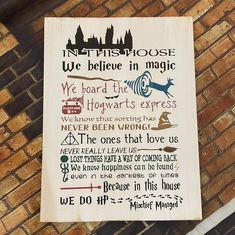 IN THIS HOUSE
We believe in magic
We board the
Hogwarts express
We know that sorting has
NEVER BEEN WRONG!
The ones that love us
NEVER REALLY LEAVE US
LOST THINGS HAVE A WAY OF COMING BACK
We know happiness can be found
even in the darkest of times
Because in this house
WE DO HP
Mischief Managed